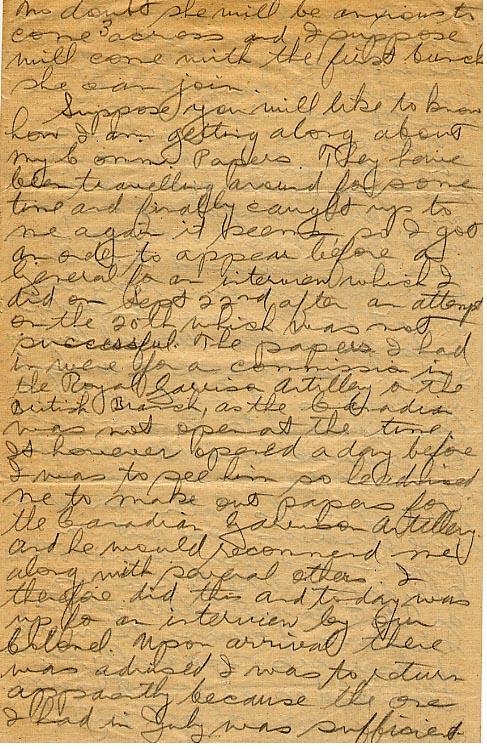 no doubt she will be anxious to
come across and I suppose
3
will come with the first bunch
she can join.
Suppose you will like to know
how I am getting along about
my Comm Papers. They have
been travelling around for some
time and finally caught up to
me again it seems so I got
an order to appear before a
General for an interview which I
did on Sept 22nd after an attempt
on the 20th which was not
successful. The papers I had
in were for a commission in
the Royal Garrison Artillery or the
British Branch, as the Canadian
was not open at the time.
It however opened a day before
I was to see him so he advised
me to make out papers for
the Canadian Garrison Artillery
and he would recommend me
along with several others. I
therefore did this and today was
up for an interview by Our
Colonel. Upon arrival there
was advised I was to return
apparently because the one
I had in July was sufficient